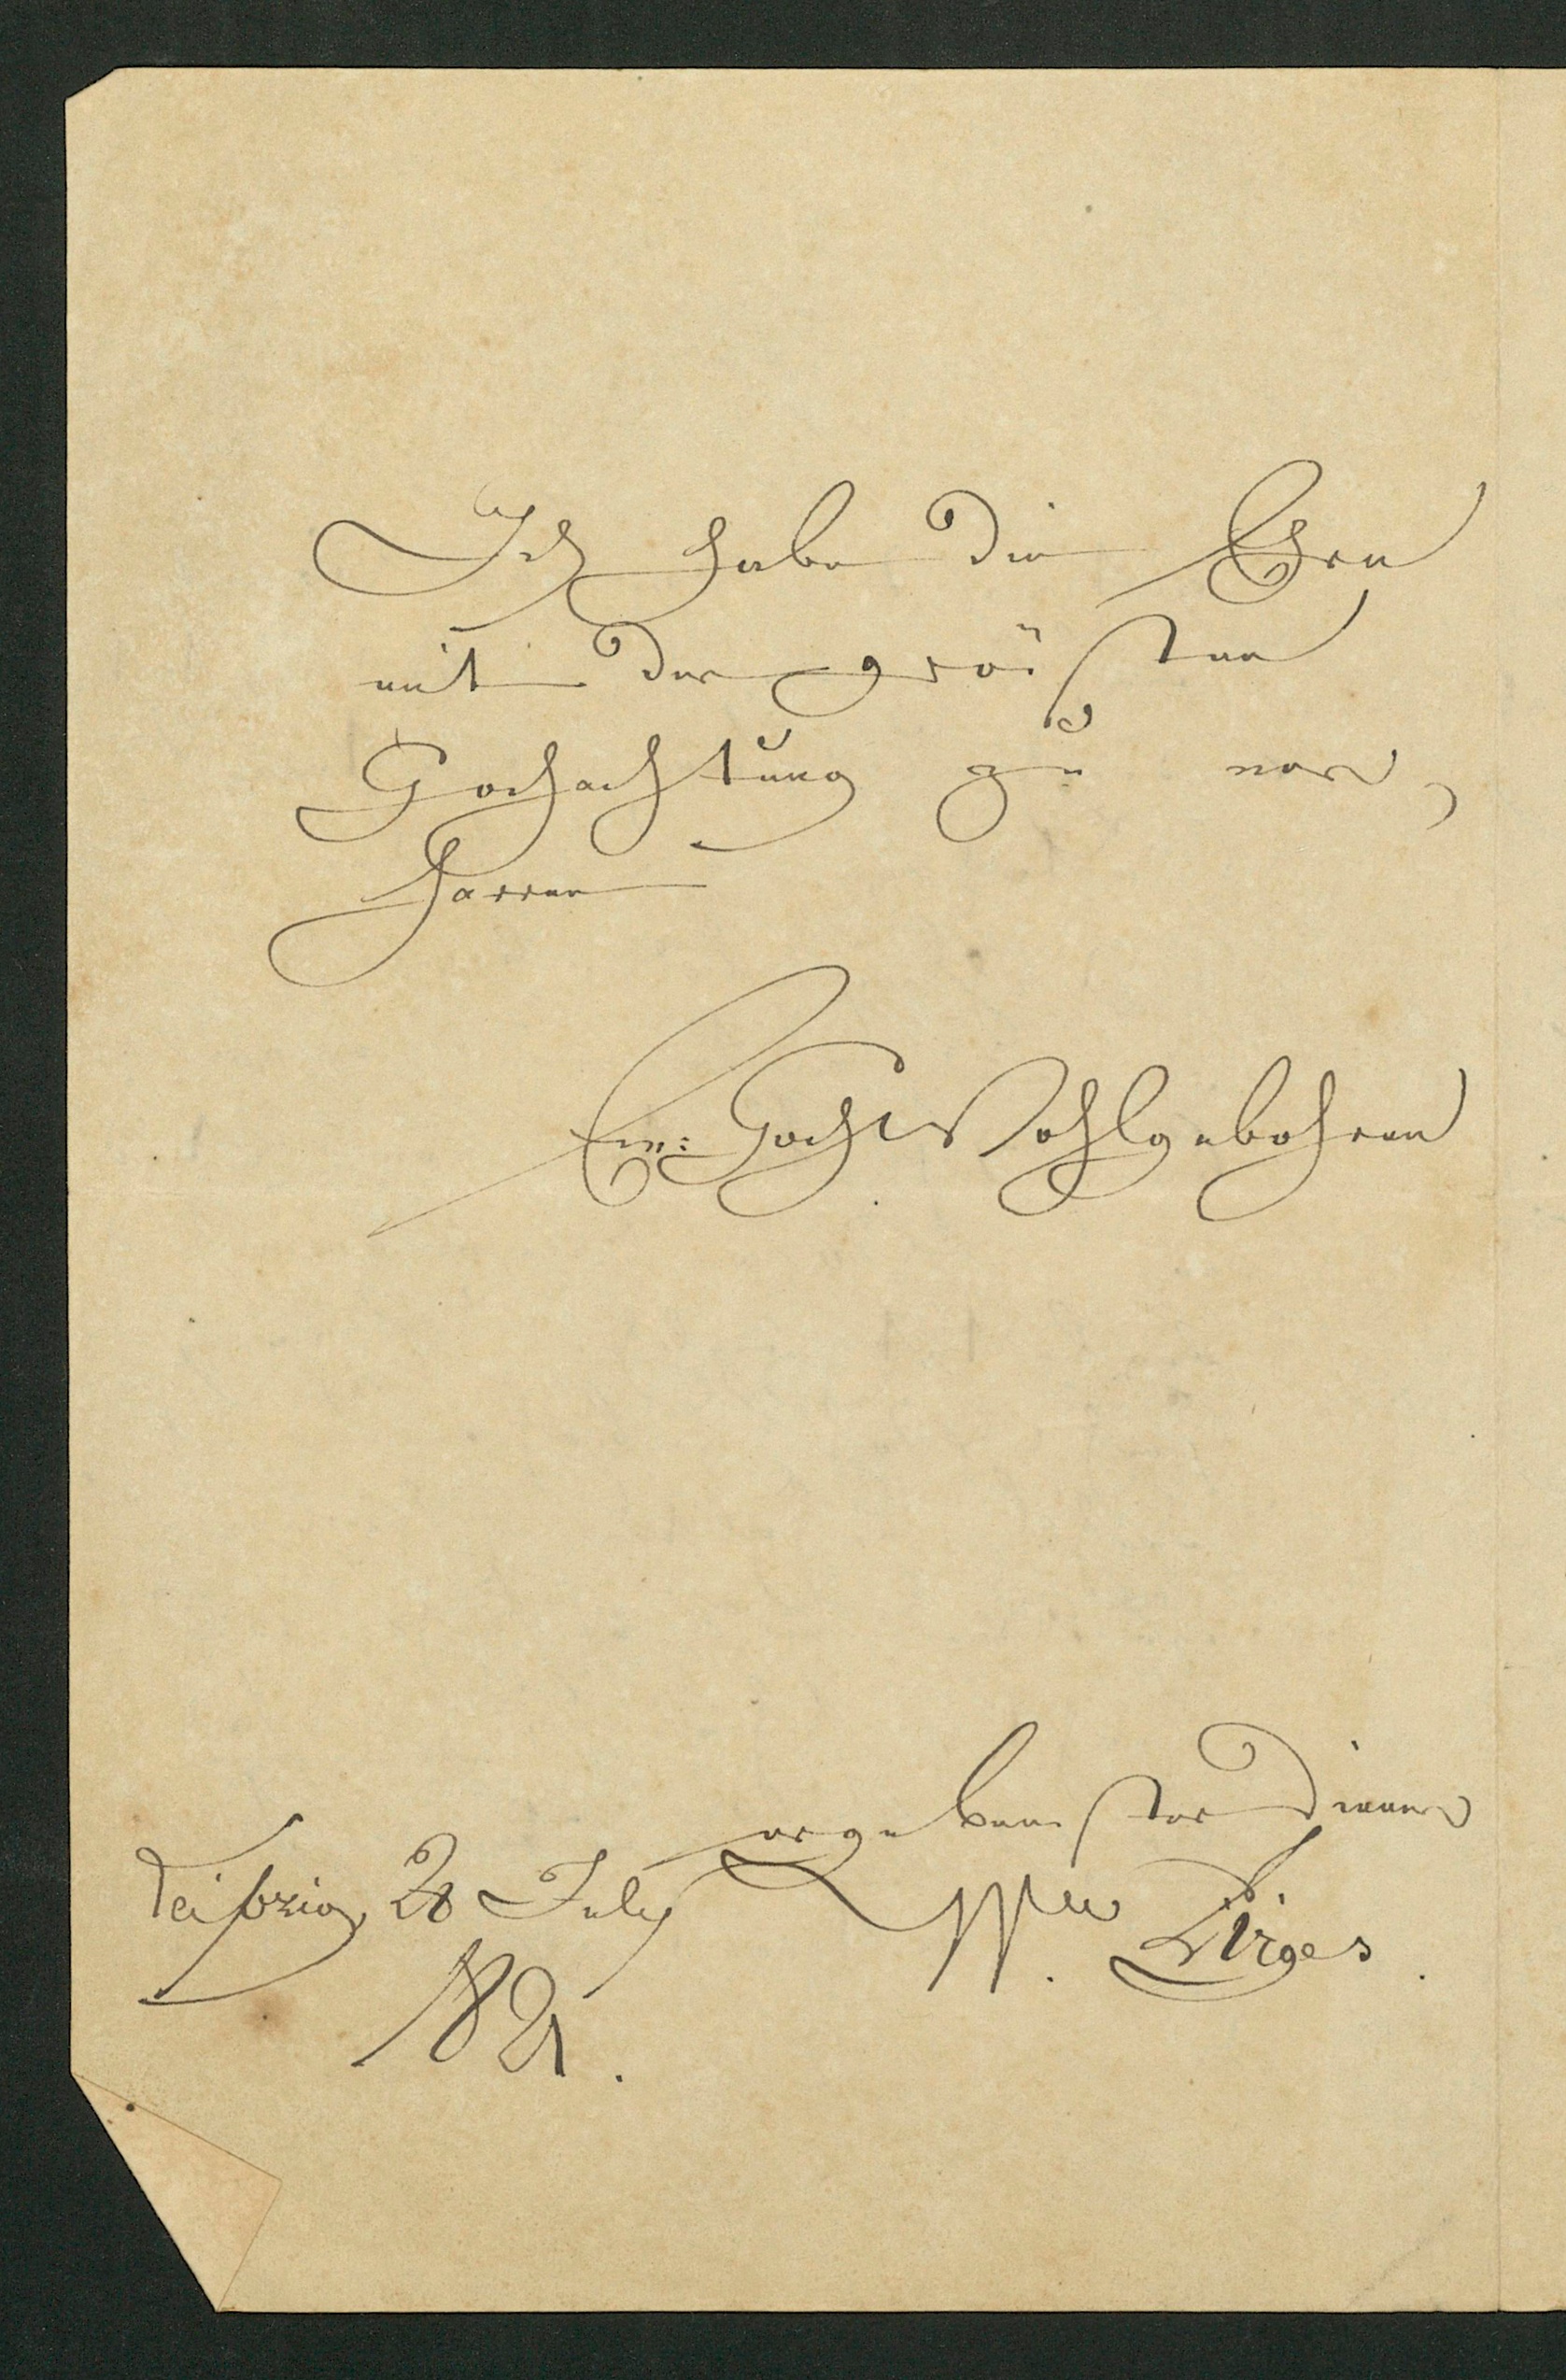 Ich habe die Ehre
mit der grösten
Hochachtung zu ver,
harren
Ew: HochWohlgebohren
ergebenster Diener
Leipzig, 20 July W. Lirges.